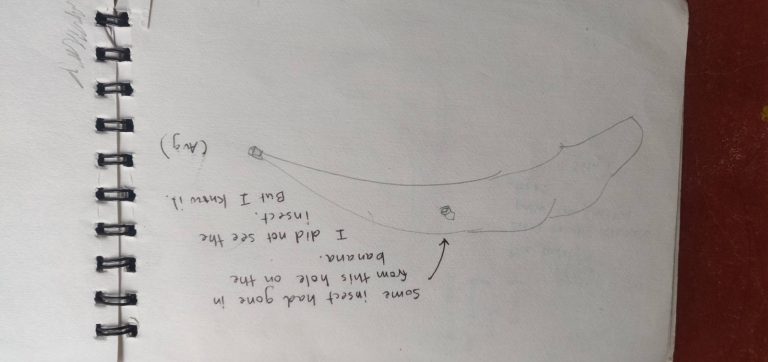 Some insect had gone in
from this hole on the
banana.
I did not see the
insect.
But I know it.